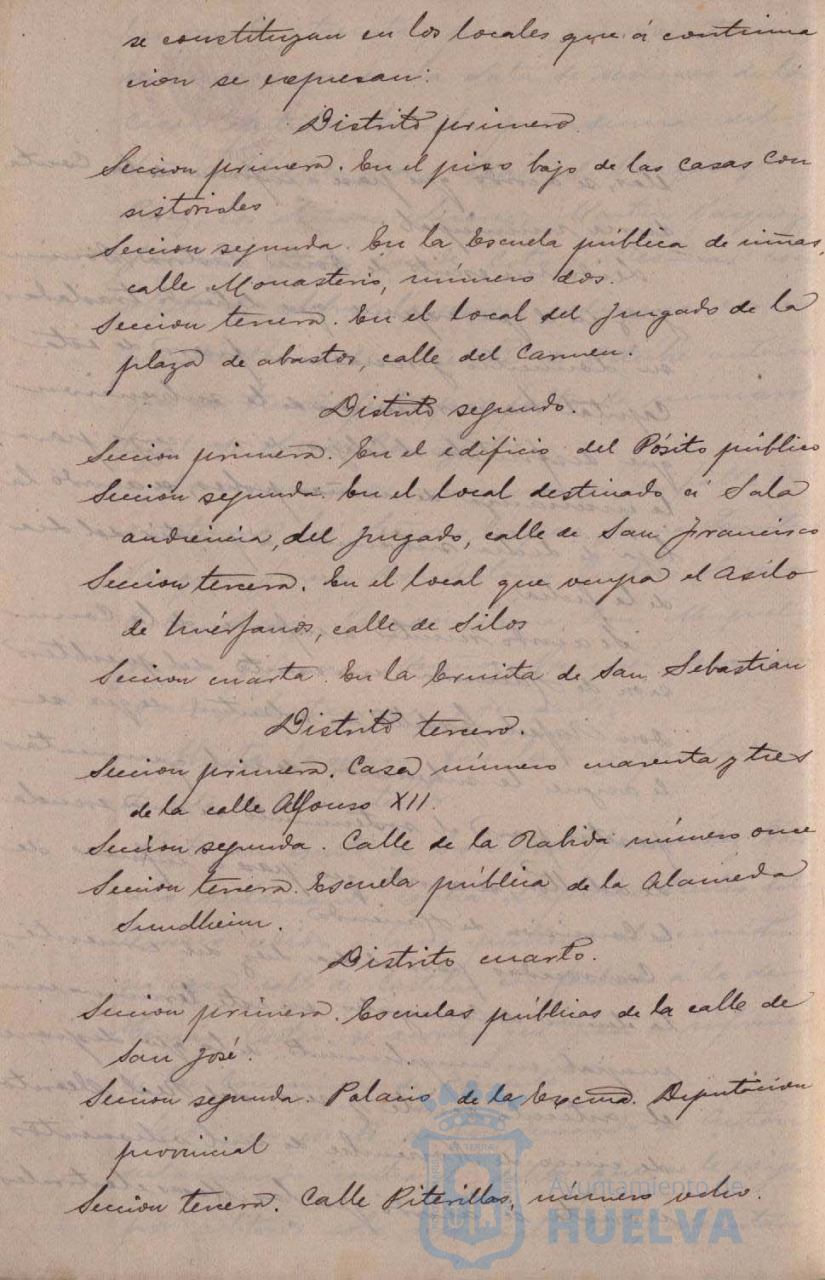 se constituyan en los locales que á continua
cion se expresan:
Distrito primero
Seccion primera. En el piso bajo de las casas Con
sistoriales
Seccion segunda. En la Escuela pública de niñas,
calle Monasterio, número dos.
Seccion tercera. En el local del Juzgado de la
plaza de abastos, calle del Carmen.
Distrito segundo.
Seccion primera. En el edificio del Pósito público
Seccion segunda. En el local destinado á Sala
audiencia, del Juzgado, calle de San Francisco
Seccion tercera. En el local que ocupa el Asilo
de huérfanos, calle de Silos
Seccion cuarta. En la Ermita de San Sebastian
Distrito tercero.
Seccion primera. Casa número cuarenta y tres
de la calle Alfonso XII.
Seccion segunda. Calle de la Rabida número once
Seccion tercera. Escuela pública de la Alameda
Sundheim.
Distrito cuarto.
Seccion primera. Escuelas públicas de la calle de
San José.
Seccion segunda. Palacio de la Excma. Diputacion
provincial
Seccion tercera. Calle Piterillas, número ocho.
Ayuntamiento de
HUELVA